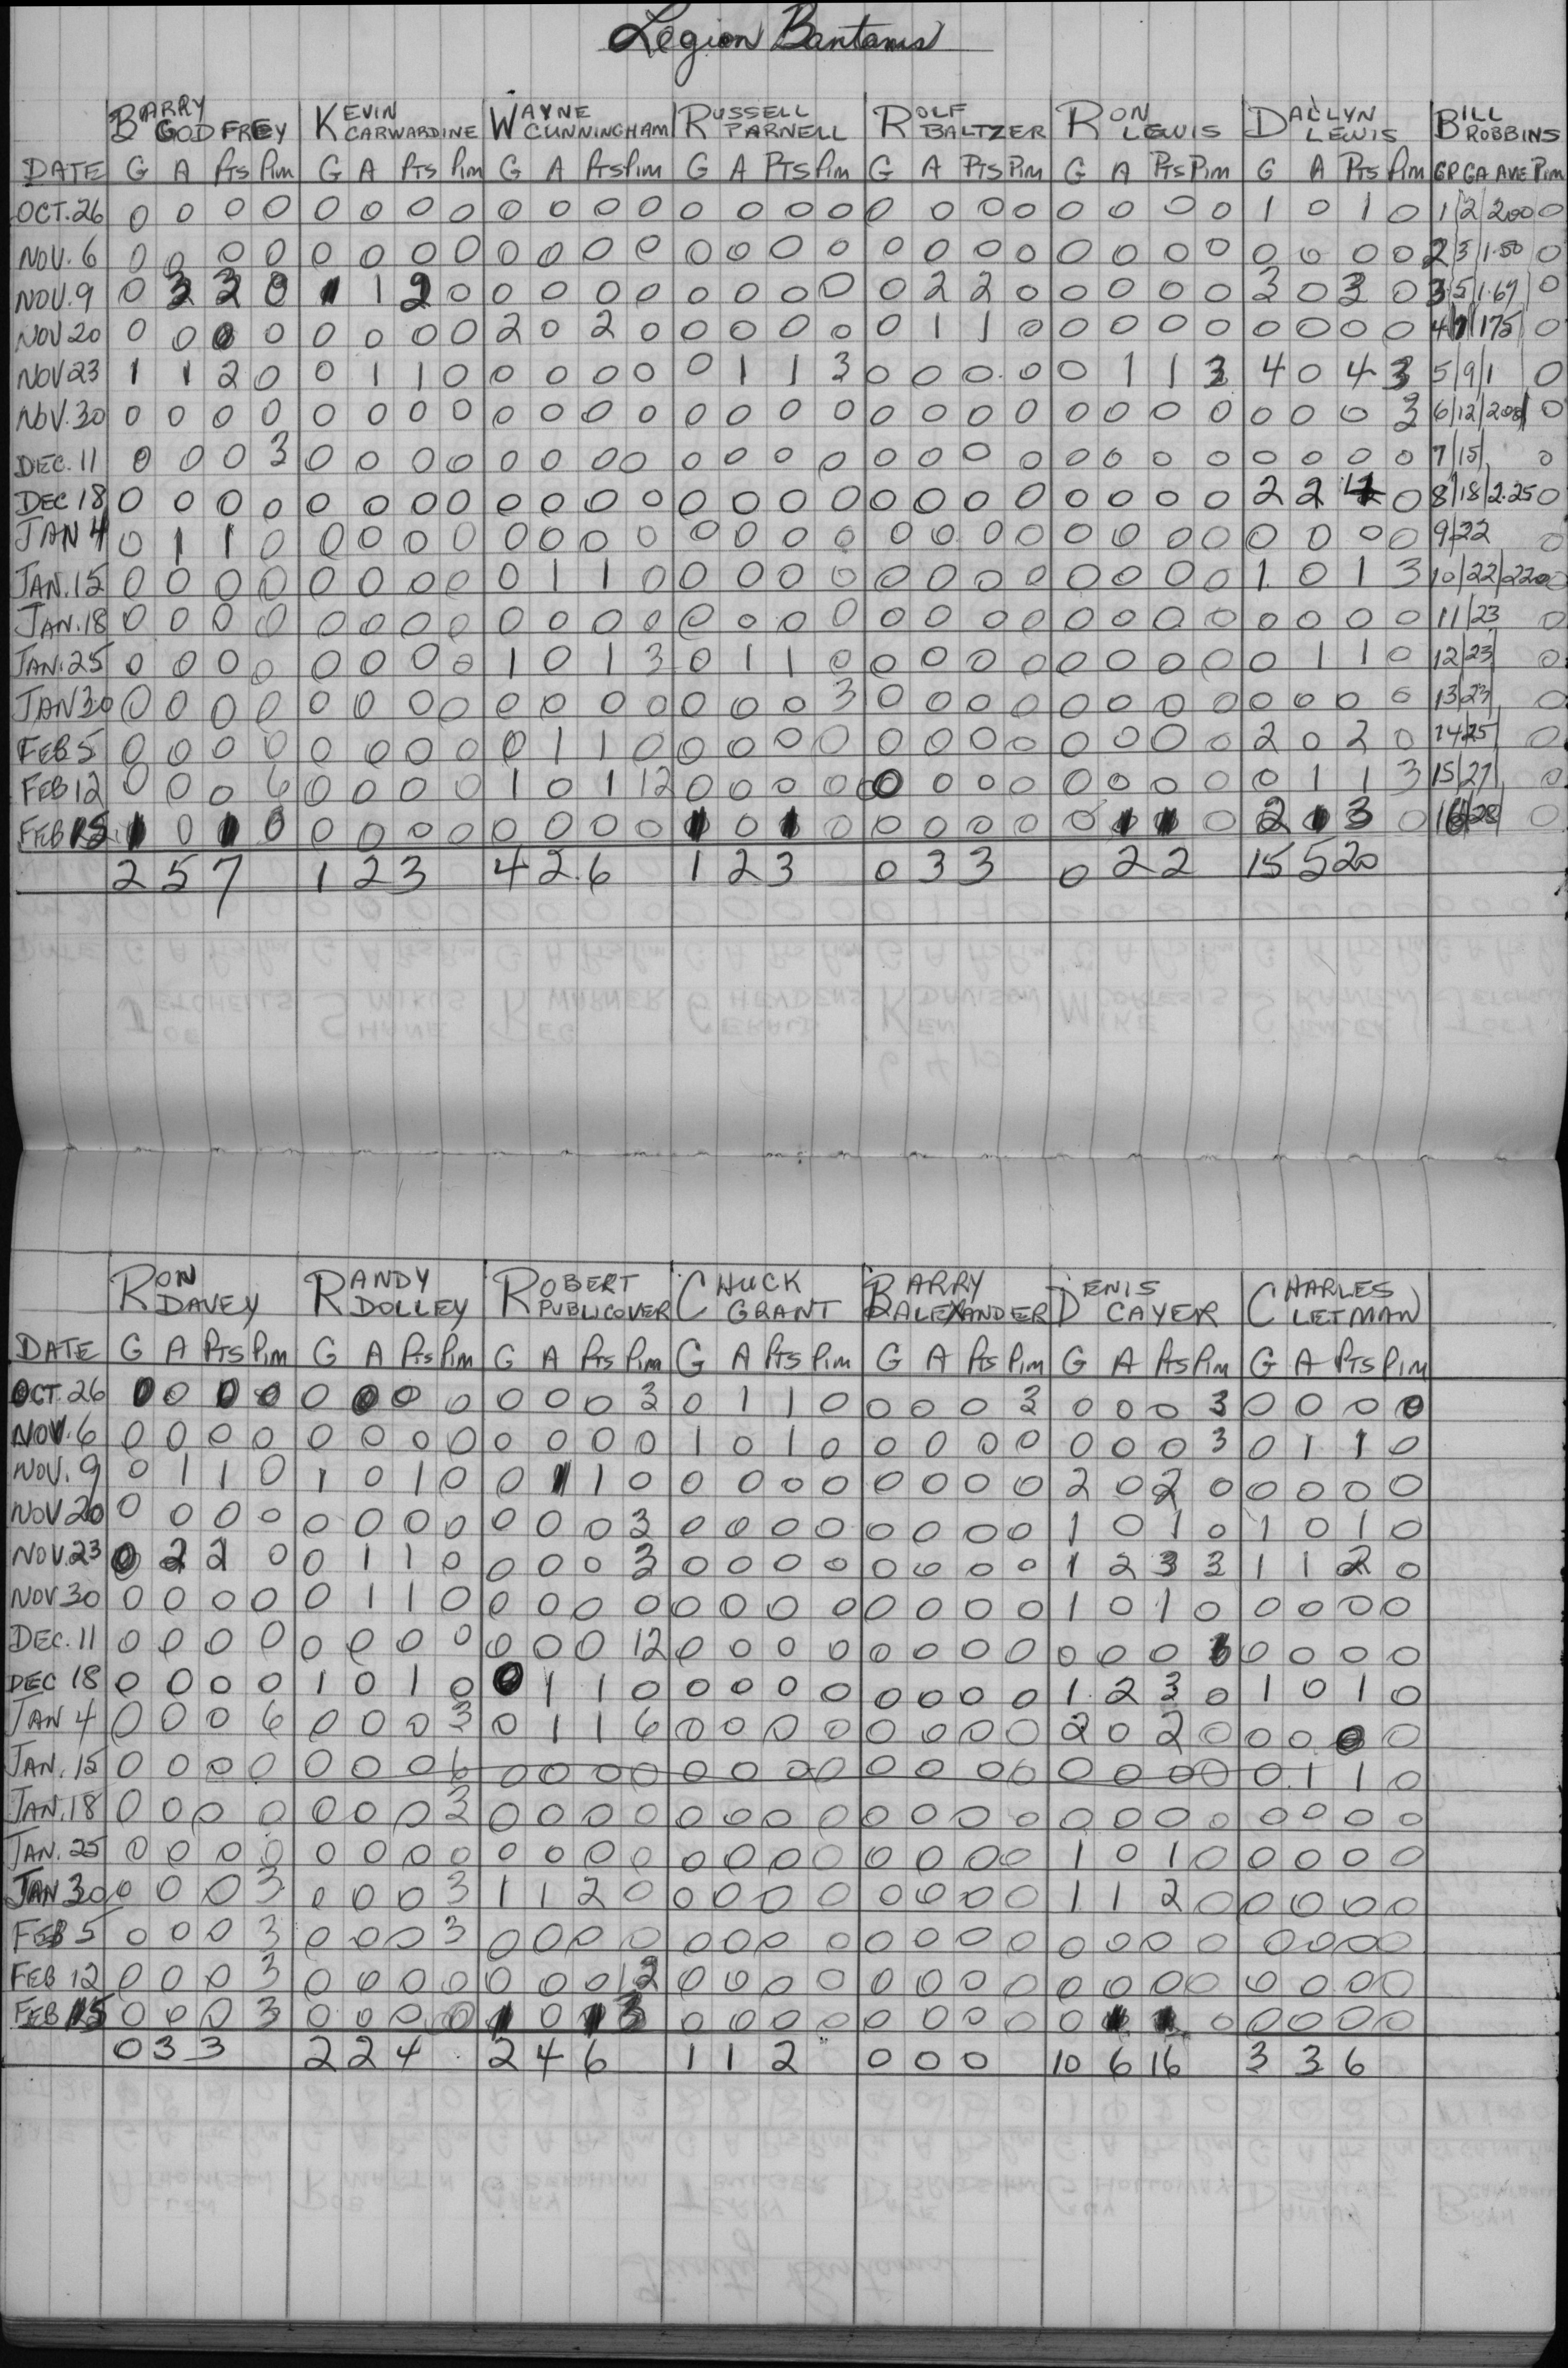 Legion Bantams
BARRY GODFREY KEVIN CARWARDINE WAYNE CUNNINGHAM RUSSELL PARNELL ROLF BALTZER RON LEWIS DALLYN LEWIS BILL ROBBINS
DATE G A Pts Pim G A Pts Pim G A Pts Pim G A Pts Pim G A Pts Pim G A Pts Pim G A Pts Pim GP GA AVE Pim
OCT. 26 0 0 0 0 0 0 0 0 0 0 0 0 0 0 0 0 0 0 0 0 0 0 0 0 1 0 1 0 1/2/200 0
NOV. 6 0 0 0 0 0 0 0 0 0 0 0 0 0 0 0 0 0 0 0 0 0 0 0 0 0 0 0 0 2/3/1.50 0
NOV. 9 0 3 3 0 1 1 2 0 0 0 0 0 0 0 0 0 0 2 2 0 0 0 0 0 3 0 3 0 3/5/1.67/ 0
NOV 20 0 0 0 0 0 0 0 0 2 0 2 0 0 0 0 0 0 1 1 0 0 0 0 0 0 0 0 0 4/7/175/ 0
NOV 23 1 1 2 0 0 1 1 0 0 0 0 0 0 1 1 3 0 0 0 0 0 1 1 3 4 0 4 3 5/9/1 0
NOV. 30 0 0 0 0 0 0 0 0 0 0 0 0 0 0 0 0 0 0 0 0 0 0 0 0 0 0 0 3 6/12/200/ 0
DEC. 11 0 0 0 3 0 0 0 0 0 0 0 0 0 0 0 0 0 0 0 0 0 0 0 0 0 0 0 0 7/15/ 0
DEC 18 0 0 0 0 0 0 0 0 0 0 0 0 0 0 0 0 0 0 0 0 0 0 0 0 2 2 4 0 8/18/2.25 0
JAN 4 0 1 1 0 0 0 0 0 0 0 0 0 0 0 0 0 0 0 0 0 0 0 0 0 0 0 0 0 9/22 0
JAN. 15 0 0 0 0 0 0 0 0 0 1 1 0 0 0 0 0 0 0 0 0 0 0 0 0 1 0 1 3 10/22/220 0
JAN. 18 0 0 0 0 0 0 0 0 0 0 0 0 0 0 0 0 0 0 0 0 0 0 0 0 0 0 0 0 11/23 0
JAN. 25 0 0 0 0 0 0 0 0 1 0 1 3 0 1 1 0 0 0 0 0 0 0 0 0 0 1 1 0 12/23/ 0
JAN 30 0 0 0 0 0 0 0 0 0 0 0 0 0 0 0 3 0 0 0 0 0 0 0 0 0 0 0 0 13/23/ 0
FEB 5 0 0 0 0 0 0 0 0 0 1 1 0 0 0 0 0 0 0 0 0 0 0 0 0 2 0 2 0 14/25/ 0
FEB 12 0 0 0 6 0 0 0 0 1 0 1 12 0 0 0 0 0 0 0 0 0 0 0 0 0 1 1 3 15/27/ 0
FEB 15 1 0 1 0 0 0 0 0 0 0 0 0 1 0 1 0 0 0 0 0 0 1 1 0 2 1 3 0 16/28/ 0
2 5 7 1 2 3 4 2 6 1 2 3 0 3 3 0 2 2 15 5 20
RON DAVEY RANDY DOLLEY ROBERT PUBLICOVER CHUCK GRANT BARRY ALEXANDER DENIS CAYER CHARLES LETMAN
DATE G A Pts Pim G A Pts Pim G A Pts Pim G A Pts Pim G A Pts Pim G A Pts Pim G A Pts Pim
OCT. 26 0 0 0 0 0 0 0 0 0 0 0 3 0 1 1 0 0 0 0 3 0 0 0 3 0 0 0 0
NOV. 6 0 0 0 0 0 0 0 0 0 0 0 0 1 0 1 0 0 0 0 0 0 0 0 3 0 1 1 0
NOV. 9 0 1 1 0 1 0 1 0 0 1 1 0 0 0 0 0 0 0 0 0 2 0 2 0 0 0 0 0
NOV 20 0 0 0 0 0 0 0 0 0 0 0 3 0 0 0 0 0 0 0 0 1 0 1 0 1 0 1 0
NOV. 23 0 2 2 0 0 1 1 0 0 0 0 3 0 0 0 0 0 0 0 0 1 2 3 3 1 1 2 0
NOV 30 0 0 0 0 0 1 1 0 0 0 0 0 0 0 0 0 0 0 0 0 1 0 1 0 0 0 0 0
DEC. 11 0 0 0 0 0 0 0 0 0 0 0 12 0 0 0 0 0 0 0 0 0 0 0 3 0 0 0 0
DEC 18 0 0 0 0 1 0 1 0 0 1 1 0 0 0 0 0 0 0 0 0 1 2 3 0 1 0 1 0
JAN 4 0 0 0 6 0 0 0 3 0 1 1 6 0 0 0 0 0 0 0 0 2 0 2 0 0 0 0 0
JAN. 15 0 0 0 0 0 0 0 6 0 0 0 0 0 0 0 0 0 0 0 0 0 0 0 0 0 1 1 0
JAN. 18 0 0 0 0 0 0 0 3 0 0 0 0 0 0 0 0 0 0 0 0 0 0 0 0 0 0 0 0
JAN. 25 0 0 0 0 0 0 0 0 0 0 0 0 0 0 0 0 0 0 0 0 1 0 1 0 0 0 0 0
JAN 30 0 0 0 3 0 0 0 3 1 1 2 0 0 0 0 0 0 0 0 0 1 1 2 0 0 0 0 0
FEB 5 0 0 0 3 0 0 0 3 0 0 0 0 0 0 0 0 0 0 0 0 0 0 0 0 0 0 0 0
FEB 12 0 0 0 3 0 0 0 0 0 0 0 12 0 0 0 0 0 0 0 0 0 0 0 0 0 0 0 0
FEB 15 0 0 0 3 0 0 0 0 1 0 1 3 0 0 0 0 0 0 0 0 0 1 1 0 0 0 0 0
0 3 3 2 2 4 2 4 6 1 1 2 0 0 0 10 6 16 3 3 6